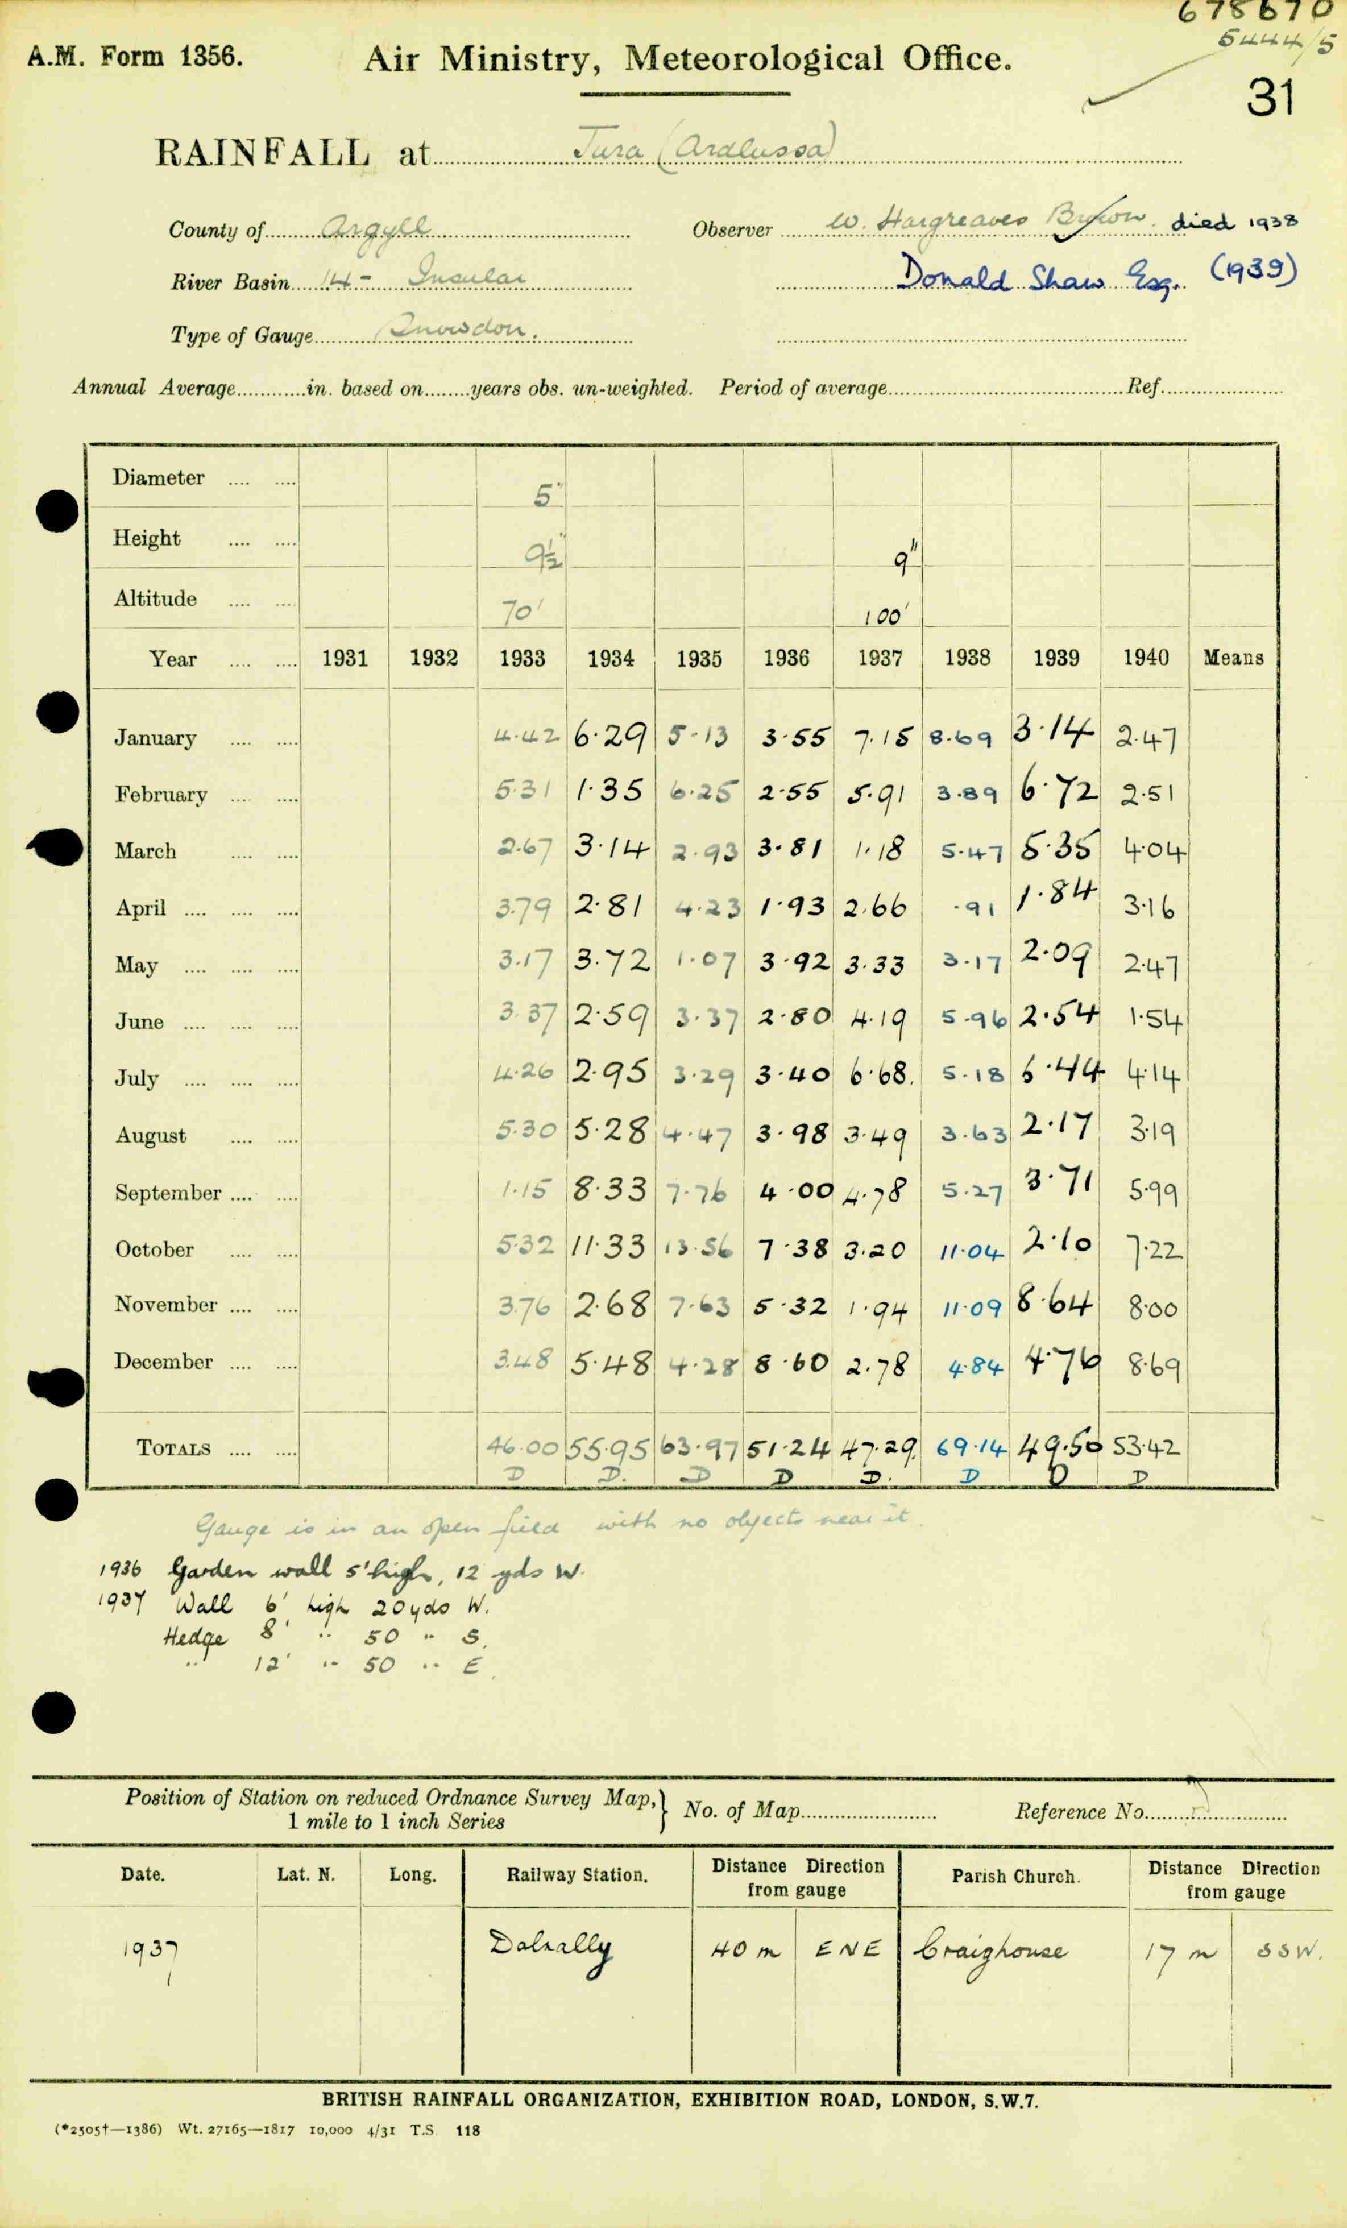 678670
5444/5
A.M. Form 1356. Air Ministry, Meteorological Office.
31
RAINFALL at Jura (Ardlussa)
County of Argyll Observer W. Hargreaves died 1938
River Basin 14 - Insular Donald Shaw Esq. (1939)
Type of Gauge Snowdon.
Annual Average in. based on years obs. un-weighted. Period of average Ref.
Diameter 5"
Height 9½" 9"
Altitude 70' 100'
Year 1931 1932 1933 1934 1935 1936 1937 1938 1939 1940 Means
January 4.42 6.29 5.13 3.55 7.15 8.69 3.14 2.47
February 5.31 1.35 6.25 2.55 5.91 3.89 6.72 2.51
March 2.67 3.14 2.93 3.81 1.18 5.47 5.35 4.04
April 3.79 2.81 4.23 1.93 2.66 .91 1.84 3.16
May 3.17 3.72 1.07 3.92 3.33 3.17 2.09 2.47
June 3.37 2.59 3.37 2.80 4.19 5.96 2.54 1.54
July 4.26 2.95 3.29 3.40 6.68. 5.18 6.44 4.14
August 5.30 5.28 4.47 3.98 3.49 3.63 2.17 3.19
September 1.15 8.33 7.76 4.00 4.78 5.27 3.71 5.99
October 5.32 11.33 13.56 7.38 3.20 11.04 2.10 7.22
November 3.76 2.68 7.63 5.32 1.94 11.09 8.64 8.00
December 3.48 5.48 4.28 8.60 2.78 4.84 4.76 8.69
TOTALS 46.00 55.95 63.97 51.24 47.29. 69.14 49.50 53.42
D D. D D D. D D D
Gauge is in an open field with no objects near it.
1936 Garden wall 5' high, 12 yds W.
1937 Wall 6' high 20 yds W.
Hedge 8' " 50 " S.
" 12' " 50 " E.
Position of Station on reduced Ordnance Survey Map, 1 mile to 1 inch Series } No. of Map Reference No.
Date. Lat. N. Long. Railway Station. Distance Direction from gauge Parish Church. Distance Direction from gauge
1937 Dalmally 40 m ENE Craighouse 17 m SSW.
BRITISH RAINFALL ORGANIZATION, EXHIBITION ROAD, LONDON, S.W.7.
(*2505†—1386) Wt. 27165—1817 10,000 4/31 T.S. 118